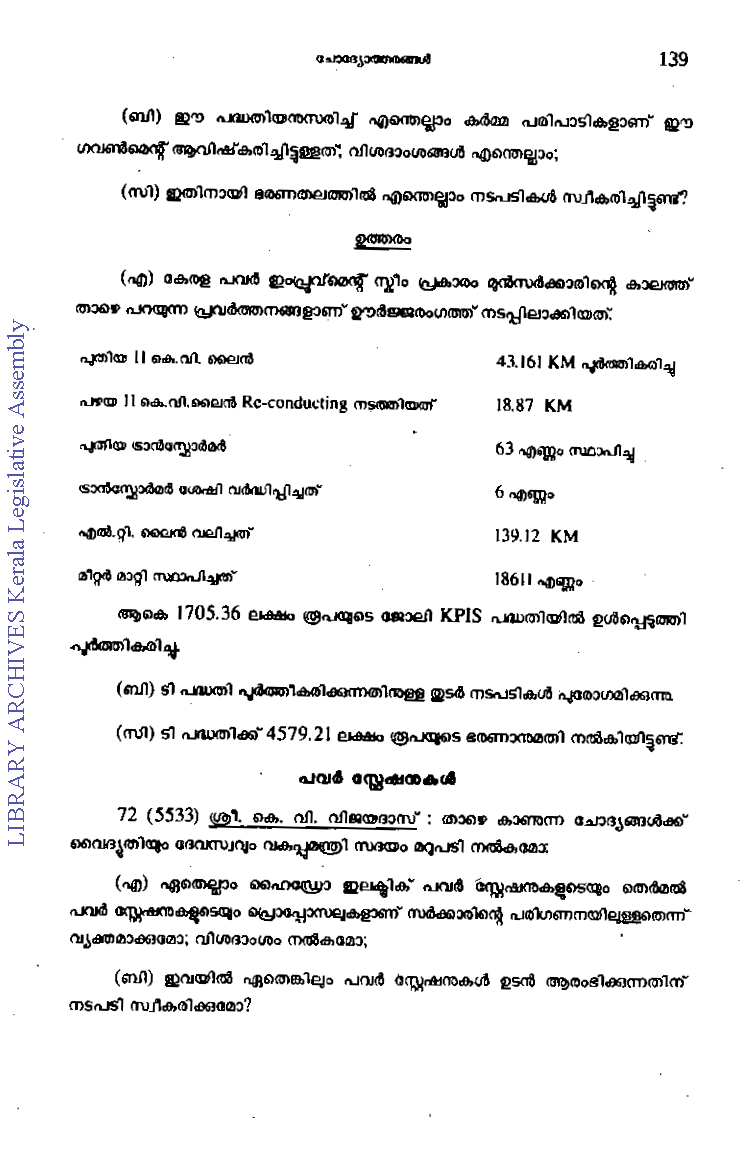 ചോദ്യോത്തരങ്ങൾ 139
(ബി) ഈ പദ്ധതിയനുസരിച്ച് എന്തെല്ലാം കർമ്മ പരിപാടികളാണ് ഈ
ഗവൺമെന്റ് ആവിഷ്കരിച്ചിട്ടുള്ളത്; വിശദാംശങ്ങൾ എന്തെല്ലാം;
(സി) ഇതിനായി ഭരണതലത്തിൽ എന്തെല്ലാം നടപടികൾ സ്വീകരിച്ചിട്ടുണ്ട്?
ഉത്തരം
(എ) കേരള പവർ ഇംപ്രൂവ്മെന്റ് സ്കീം പ്രകാരം മുൻസർക്കാരിന്റെ കാലത്ത്
താഴെ പറയുന്ന പ്രവർത്തനങ്ങളാണ് ഊർജ്ജരംഗത്ത് നടപ്പിലാക്കിയത്.
പുതിയ 11 കെ.വി. ലൈൻ 43.161 KM പൂർത്തികരിച്ചു
പഴയ 11 കെ.വി.ലൈൻ Re-conducting നടത്തിയത് 18.87 KM
പുതിയ ട്രാൻസ്ഫോർമർ 63 എണ്ണം സ്ഥാപിച്ചു
ട്രാൻസ്ഫോർമർ ശേഷി വർദ്ധിപ്പിച്ചത് 6 എണ്ണം
എൽ.റ്റി. ലൈൻ വലിച്ചത് 139.12 KM
മീറ്റർ മാറ്റി സ്ഥാപിച്ചത് 18611 എണ്ണം
ആകെ 1705.36 ലക്ഷം രൂപയുടെ ജോലി KPIS പദ്ധതിയിൽ ഉൾപ്പെടുത്തി
പൂർത്തികരിച്ചു.
(ബി) ടി പദ്ധതി പൂർത്തീകരിക്കുന്നതിനുള്ള തുടർ നടപടികൾ പുരോഗമിക്കുന്നു.
(സി) ടി പദ്ധതിക്ക് 4579.21 ലക്ഷം രൂപയുടെ ഭരണാനുമതി നൽകിയിട്ടുണ്ട്.
പവർ സ്റ്റേഷനുകൾ
72 (5533) ശ്രീ. കെ. വി. വിജയദാസ് : താഴെ കാണുന്ന ചോദ്യങ്ങൾക്ക്
വൈദ്യുതിയും ദേവസ്വവും വകുപ്പുമന്ത്രി സദയം മറുപടി നൽകുമോ:
(എ) ഏതെല്ലാം ഹൈഡ്രോ ഇലക്ട്രിക് പവർ സ്റ്റേഷനുകളുടെയും തെർമൽ
പവർ സ്റ്റേഷനുകളുടെയും പ്രൊപ്പോസലുകളാണ് സർക്കാരിന്റെ പരിഗണനയിലുള്ളതെന്ന്
വ്യക്തമാക്കുമോ; വിശദാംശം നൽകുമോ;
(ബി) ഇവയിൽ ഏതെങ്കിലും പവർ സ്റ്റേഷനുകൾ ഉടൻ ആരംഭിക്കുന്നതിന്
നടപടി സ്വീകരിക്കുമോ?
LIBRARY ARCHIVES Kerala Legislative Assembly